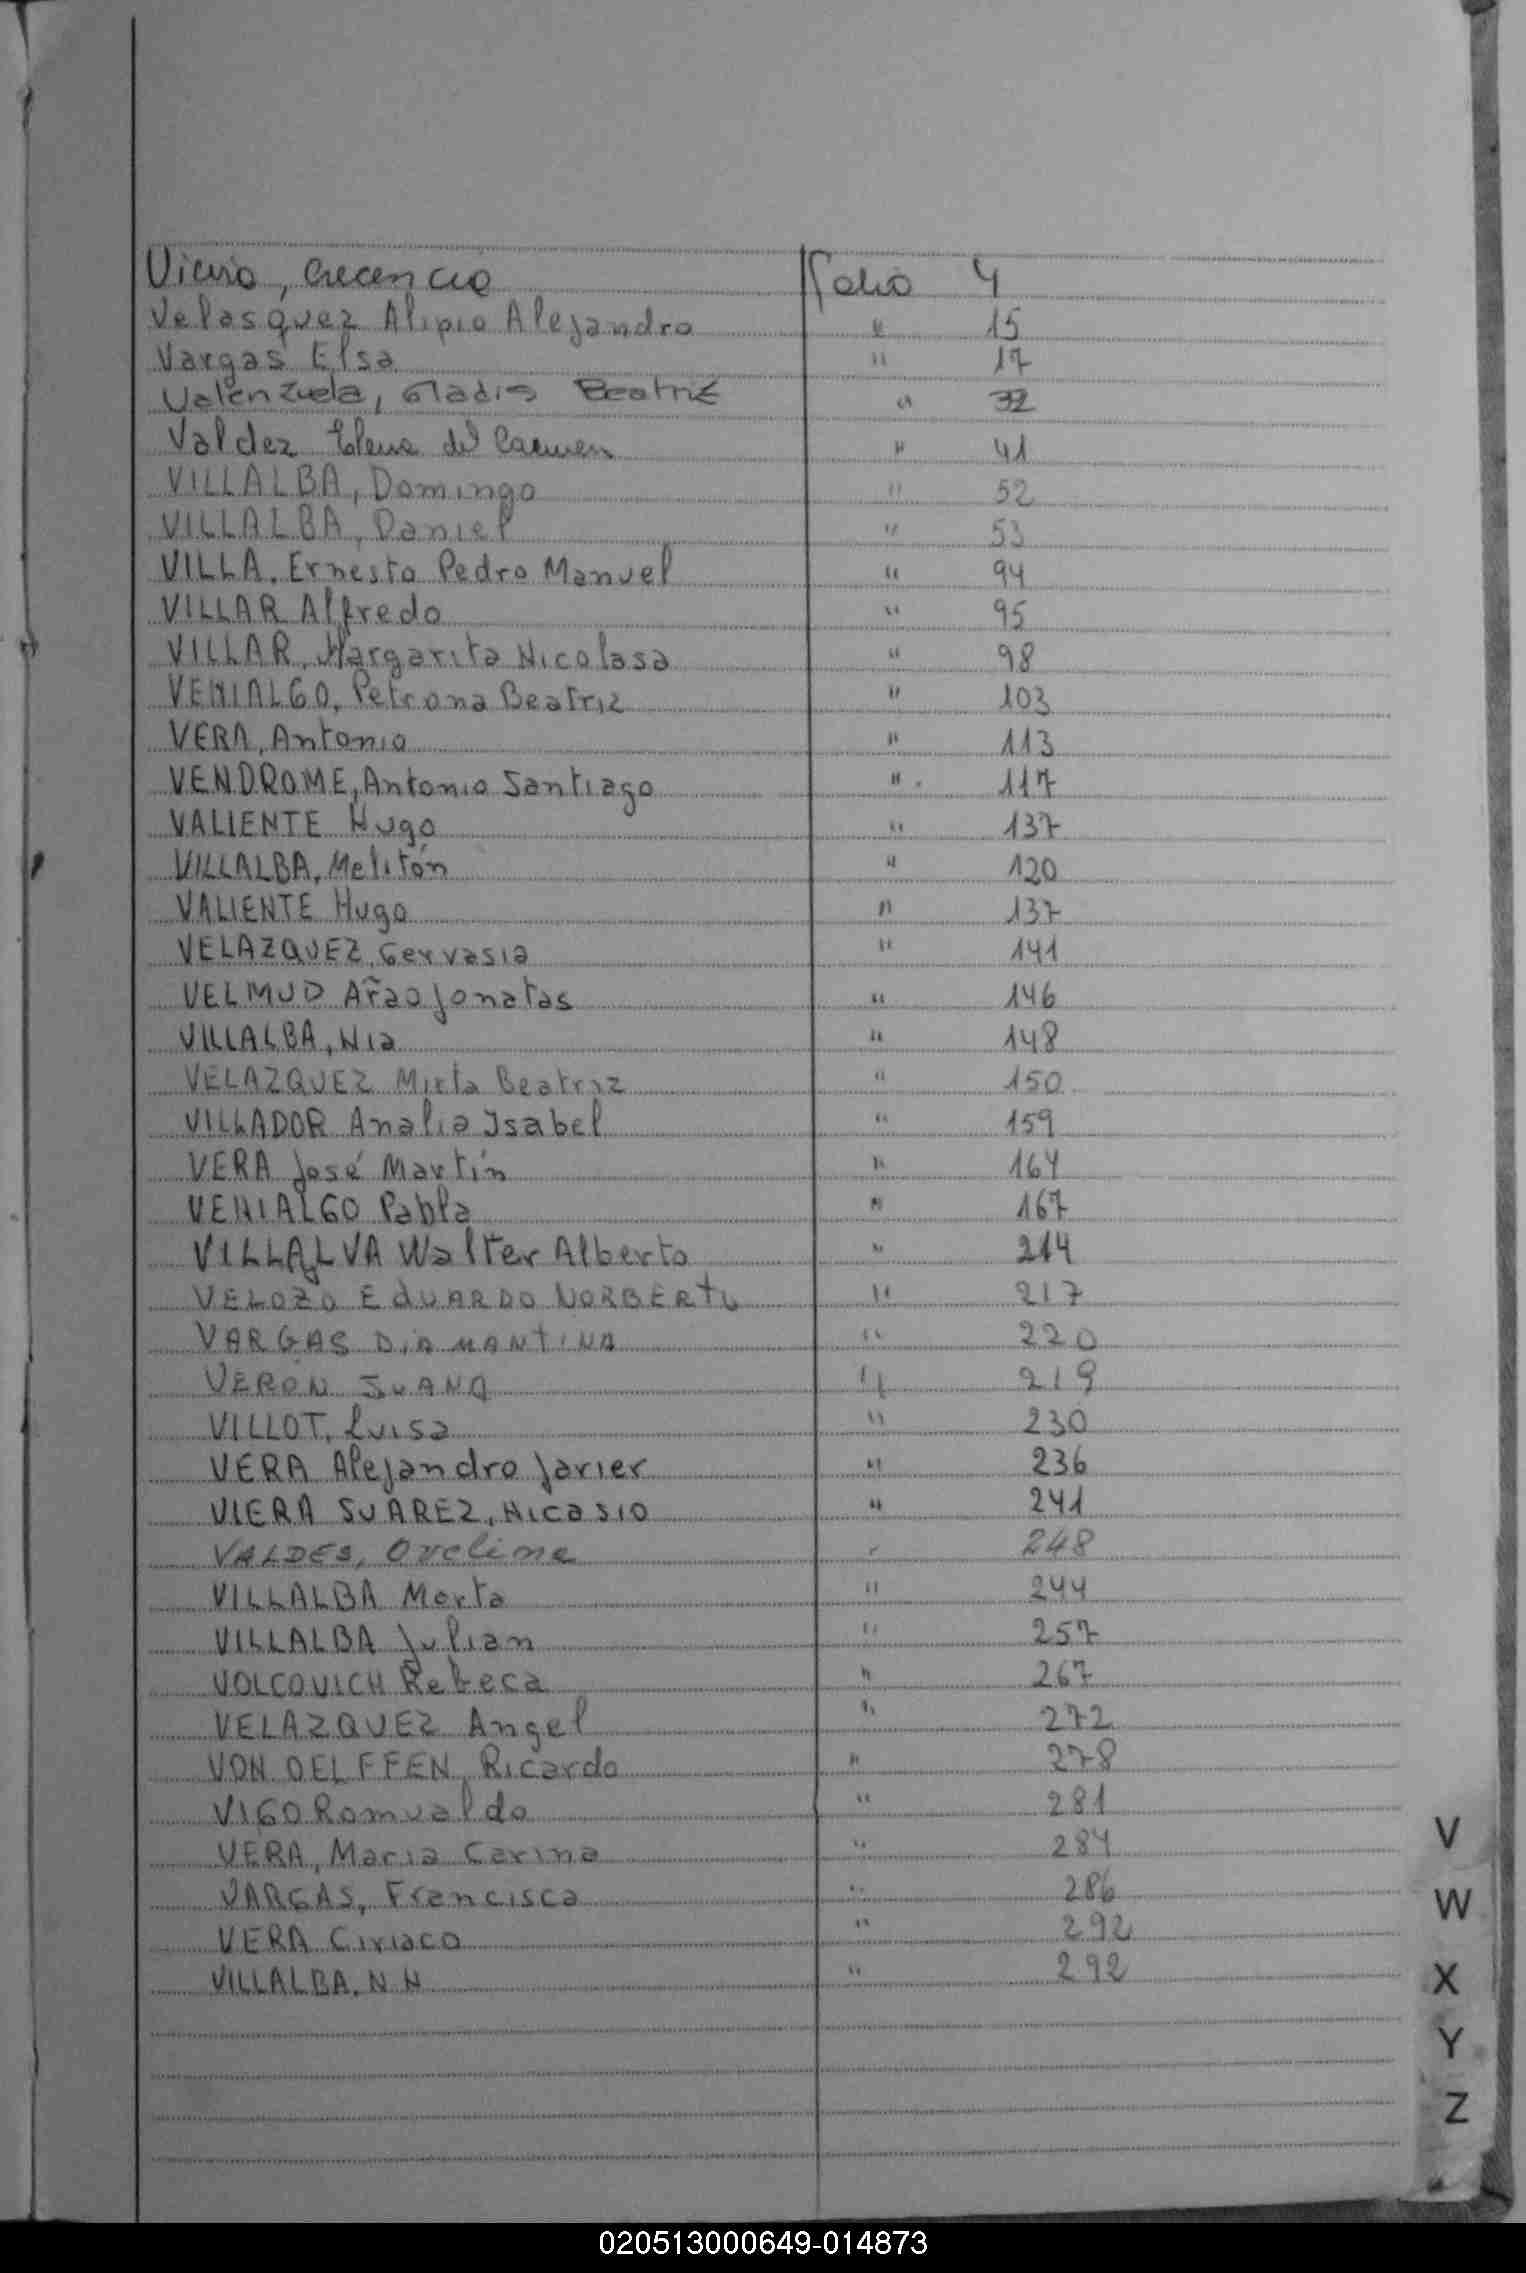 Crecencio Folio 4
Velasquez Alipio Alejandro " 15
Vargas Elsa " 17
Valenzuela, Gladis Beatriz " 32
Valdez Elena del Carmen " 41
VILLALBA, Domingo " 52
VILLALBA, Daniel " 53
VILLA, Ernesto Pedro Manuel " 94
VILLAR Alfredo " 95
VILLAR, Margarita Nicolasa " 98
VENIALGO, Petrona Beatriz " 103
VERA, Antonio " 113
VENDROME, Antonio Santiago " 117
VALIENTE Hugo " 137
VILLALBA, Melitón " 120
VALIENTE Hugo " 137
VELAZQUEZ, Gervasia " 141
VELMUD Jonatas " 146
VILLALBA, Nia " 148
VELAZQUEZ Mirta Beatriz " 150
VILLADOR Analia Isabel " 159
VERA José Martín " 164
VENIALGO Pabla " 167
VILLALVA Walter Alberto " 214
VELOZO EdUARDO NORBERTO " 217
VARGAS DiAMANTINA " 220
VERON JUANA " 219
VILLOT, Luisa " 230
VERA Alejandro Javier " 236
VIERA SUAREZ, Nicasio " 241
VALDES, Ovelina " 248
VILLALBA Marta " 244
VILLALBA Julian " 257
VOLCOVICH Rebeca " 267
VELAZQUEZ Angel " 272
VON OELFFEN, Ricardo " 278
VIGO Romualdo " 281
VERA, Maria Carina " 284
VARGAS, Francisca " 286
VERA Ciriaco " 292
VILLALBA, N.N " 292
V
W
X
Y
Z
020513000649-014873